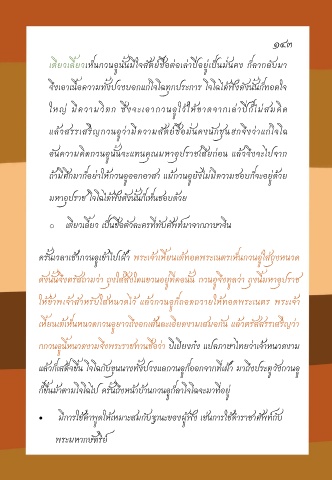 ๑๔๓
เตียวเลี้ยวเห็นกวนอูนั้นมีใจสัตย์ซื่อต่อเล่าปี่อยู่เป็นมั่นคง ก็ลากลับมา
จึงเอาเนื้อความทั้งปวงบอกแก่โจโฉทุกประการ โจโฉได้ฟังดังนั้นก็ทอดใจ
ใหญ่ มีความวิตก ซึ่งจะเอากวนอูไว้ให้ขาดจากเล่าปี่ก็ไม่สมคิด
แล้วสรรเสริญกวนอูว่ามีความสัตย์ซื่อมั่นคงนัก ซุนฮกจึงว่าแก่โจโฉ
อันความคิดกวนอูนั้นจะแทนคุณมหาอุปราชเสียก่อน แล้วจึงจะไปจาก
ถ้ามีศึกมาก็อย่าให้กวนอูออกอาสา แม้กวนอูยังไม่มีความชอบก็จะอยู่ด้วย
มหาอุปราช โจโฉได้ฟังดังนั้นก็เห็นชอบด้วย
○ เตียวเลี้ยว เป็นชื่อตัวละครที่ทับศัพท์มาจากภาษาจีน
ครั้นเวลาเช้ากวนอูเข้าไปเฝ้า พระเจ้าเหี้ยนเต้ทอดพระเนตรเห็นกวนอูใส่ถุงหนวด
ดังนั้นจึงตรัสถามว่า ถุงใส่สิ่งใดแขวนอยู่ที่คอนั้น กวนอูจึงทูลว่า ถุงนี้มหาอุปราช
ให้ข้าพเจ้าสำหรับใส่หนวดไว้ แล้วกวนอูก็ถอดถวายให้ทอดพระเนตร พระเจ้า
เหี้ยนเต้เห็นหนวดกวนอูยาวถึงอกเส้นละเอียดงามเสมอกัน แล้วตรัสสรรเสริญว่า
กวนอูนี้หนวดงามจึงพระราชทานชื่อว่า บีเยียงก๋ง แปลภาษาไทยว่าเจ้าหนวดงาม
แล้วก็เสด็จขึ้น โจโฉกับขุนนางทั้งปวงแลกวนอูก็ออกจากที่เฝ้า มาถึงประตูวังกวนอู
ก็ขึ้นม้าตามโจโฉไป ครั้นถึงหน้าบ้านกวนอูก็ลาโจโฉจะมาที่อยู่
• มีการใช้คำพูดให้เหมาะสมกับฐานะของผู้ฟัง เช่นการใช้คำราชาศัพท์กับ
พระมหากษัตริย์